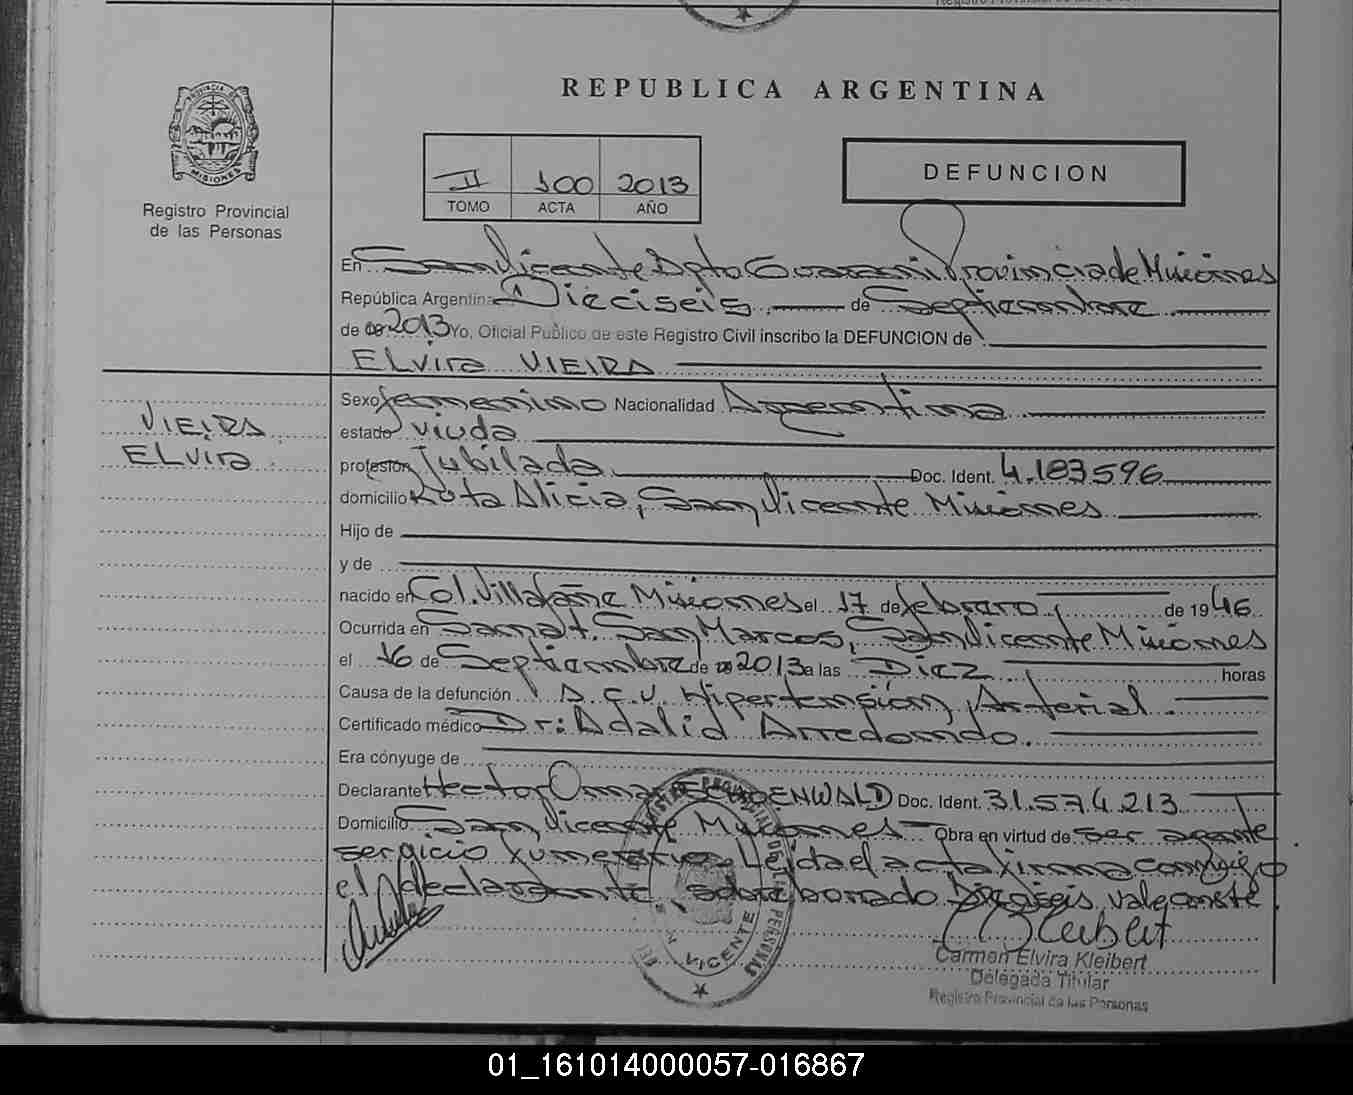 REPUBLICA ARGENTINA
PROVINCIA DE
MISIONES
Registro Provincial
de las Personas
II 100 2013
TOMO ACTA AÑO
DEFUNCION
En San Vicente Dpto Guarani Provincia de Misiones
República Argentina Dieciseis de Septiembre
de 2013 Yo, Oficial Publico de este Registro Civil inscribo la DEFUNCION de
ELvira VIEIRA
VIEIRA
ELvira
Sexo femenino Nacionalidad Argentina
estado viuda
profesión Jubilada Doc. Ident. 4.183596
domicilio Ruta Alicia, San Vicente Misiones
Hijo de
y de
nacido en Col. Villafañe Misiones el 17 de febrero de 1946
Ocurrida en Sanat. San Marcos, San Vicente Misiones
el 16 de Septiembre de 2013 a las Diez horas
Causa de la defunción A.C.V. Hipertensión Arterial.
Certificado médico Dr: Adalid Arredondo.
Era cónyuge de
Declarante Hector Omar Doc. Ident. 31.574.213
Domicilio San Vicente Misiones Obra en virtud de ser agente
servicio funerario. Leida el acta firma conmigo
el declarante, sobre borrado Dieciseis vale conste.
VICENTE
Kleibert
Carmen Elvira Kleibert
Delegada Titular
Registro Provincial de las Personas
01_161014000057-016867